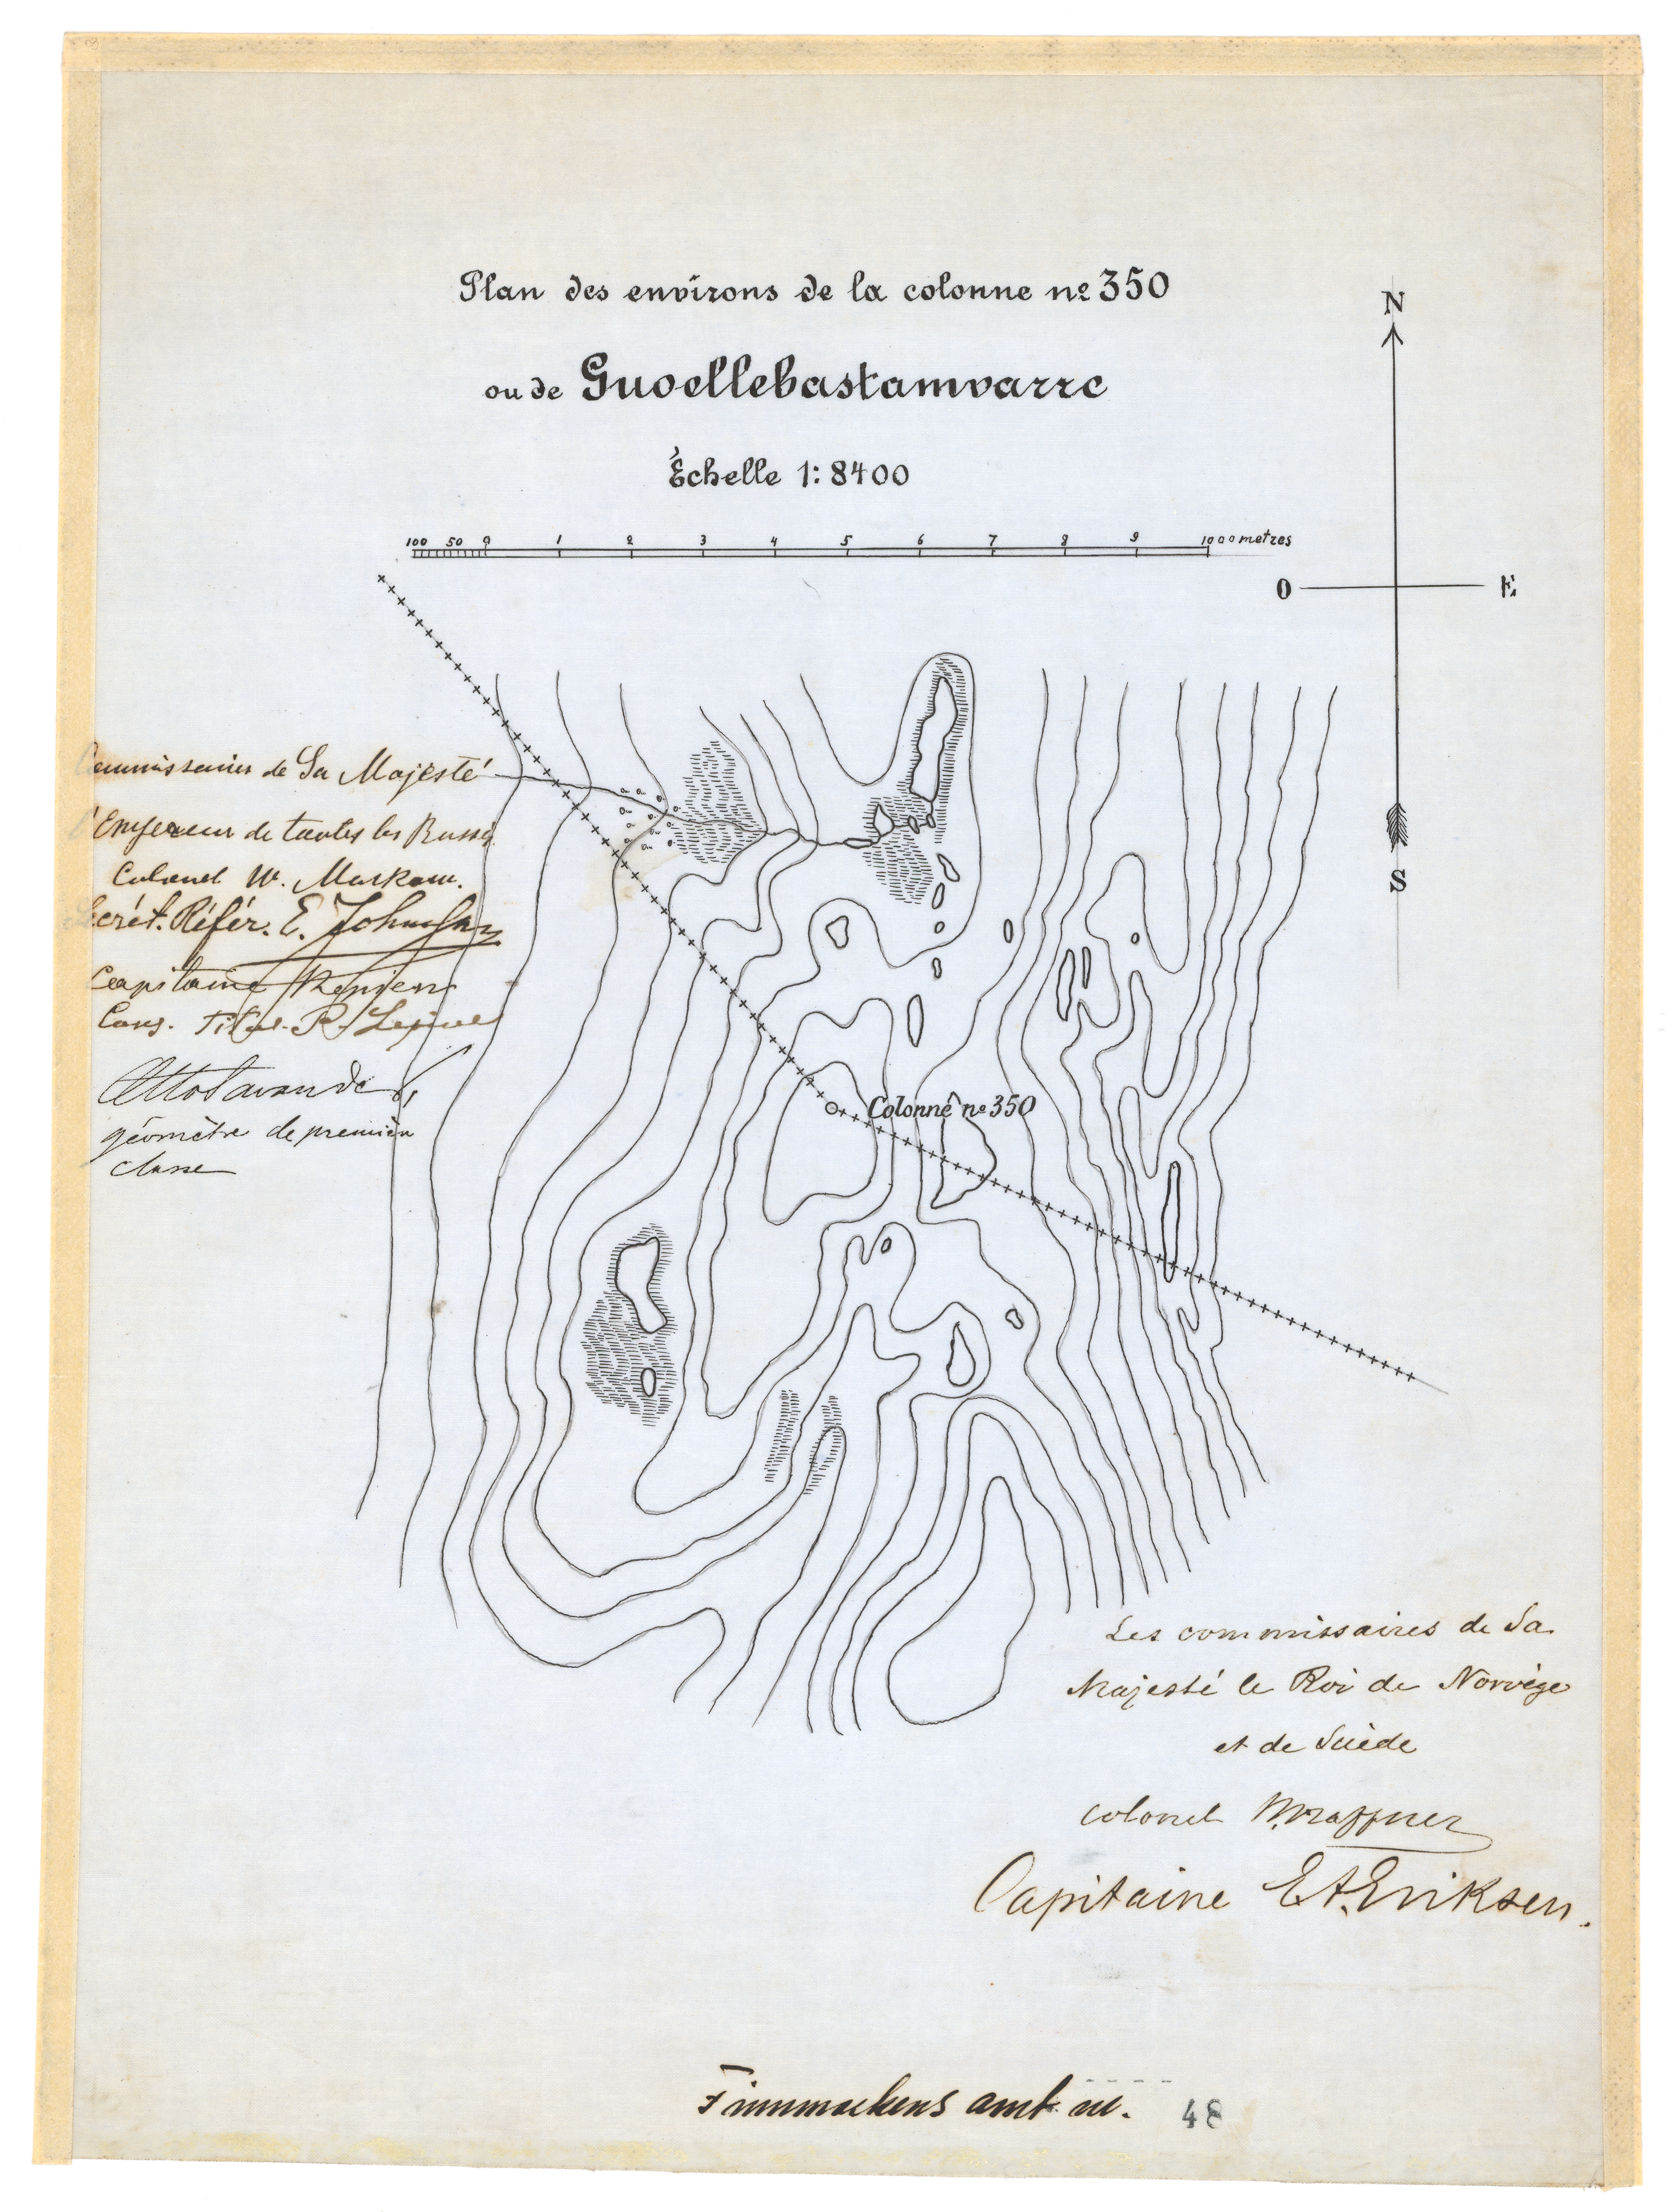 Plan des environs de la colonne nº 350
ou de Guoellebastamvarre
Échelle 1:8400
100 50 0 1 2 3 4 5 6 7 8 9 1000 metres
N
O E
S
Commissaires de Sa Majesté
l'Empereur de toutes les Russi
Colonel W.
Secrét. Référ. E.
Capitaine
Cons. Titul. R.
géomètre de première
classe
Colonne nº 350
Les commissaires de Sa
Majesté le Roi de Norvège
et de Suède
colonel
Capitaine E.A. Eriksen.
Finmarkens amt nr. 48